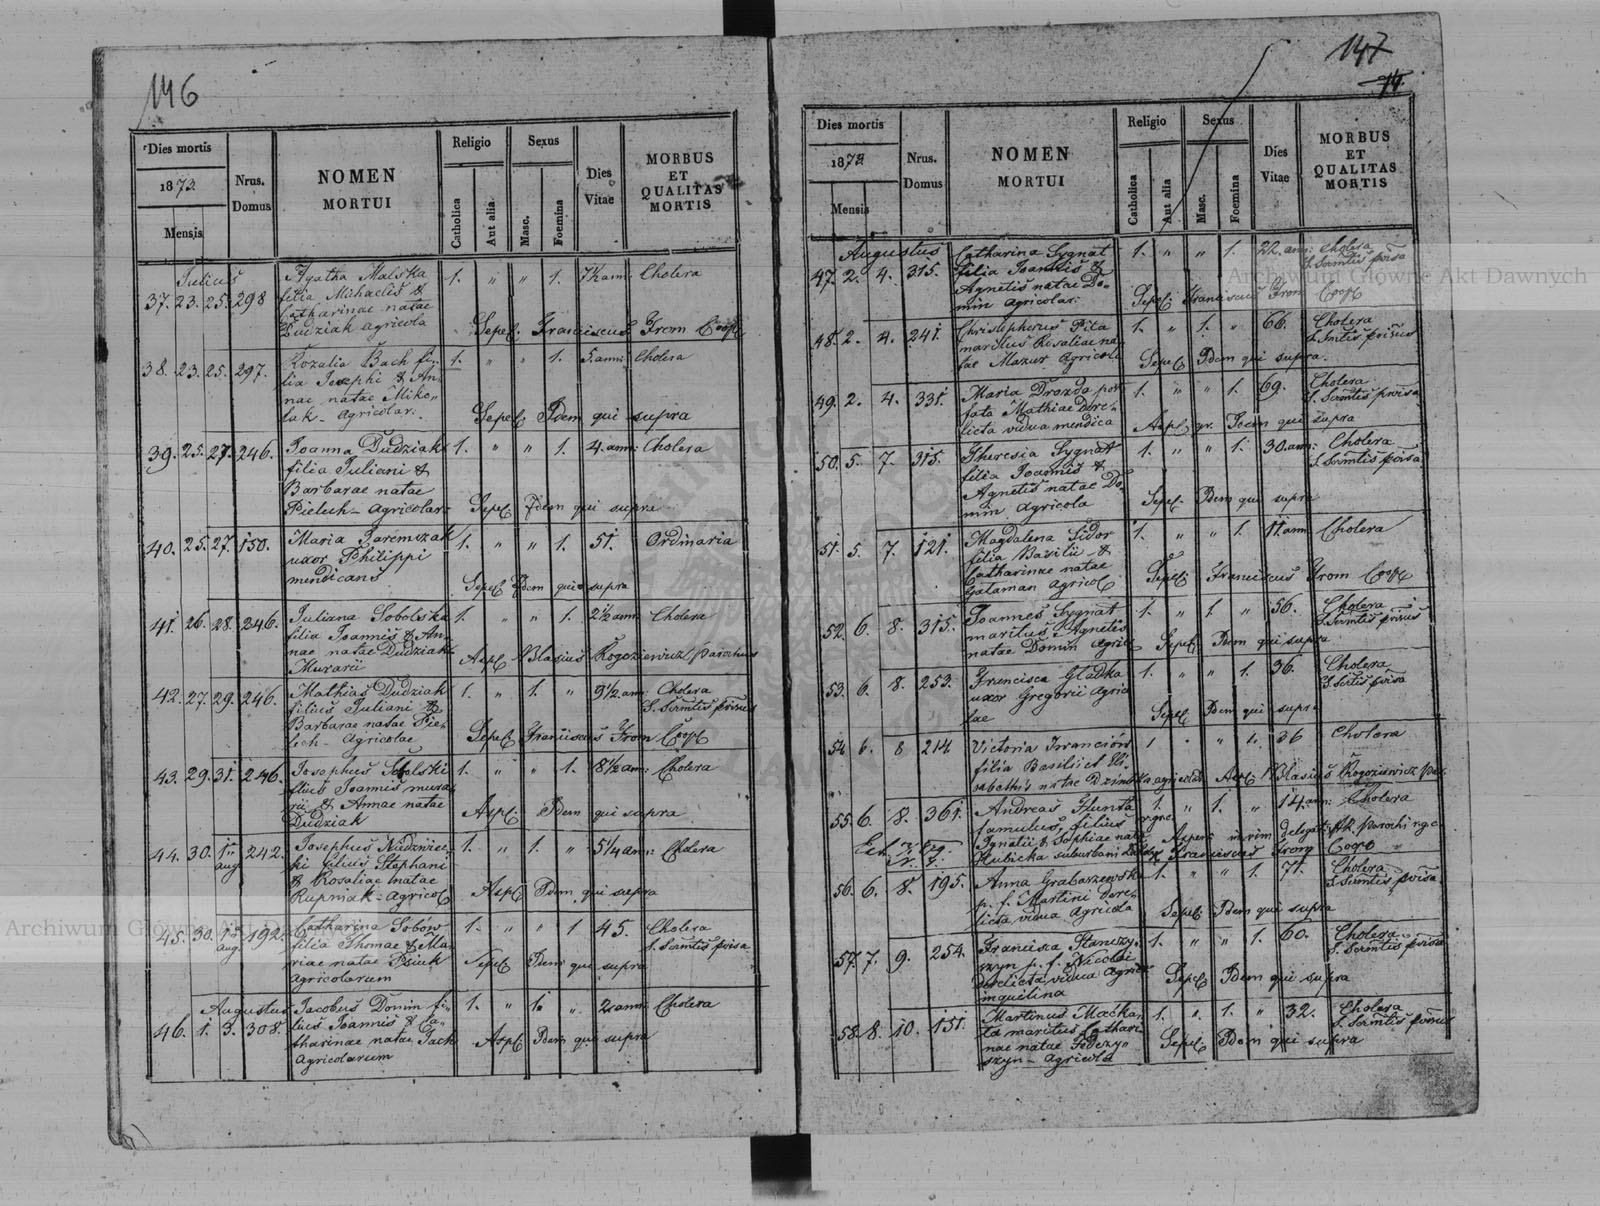 146
Dies mortis
1873
Mensis
Nrus. Domus
NOMEN
MORTUI
Religio
Catholica
Aut alia
Sexus
Masc.
Foemina
Dies
Vitae
MORBUS
ET
QUALITAS
MORTIS
Julius
37. 23. 25. 298 Agatha Malska 1. " " 1. 7½ ann: Cholera
filia Michaelis &
Catharinae natae
Dudziak agricola Sepel. Franciscus From Coop.
38. 23. 25. 297. Rozalia Bach fi- 1. " " 1. 5. ann: Cholera
lia Josephi & An-
nae natae Miko-
lak - agricolar: Sepel. Idem qui supra
39. 25. 27. 246. Joanna Dudziak 1. " " 1. 4. ann: Cholera
filia Juliani &
Barbarae natae
Pielech - agricolar: Sepel. Idem qui supra
40. 25. 27. 150. Maria Jaremczak 1. " " 1. 51. Ordinaria
uxor Philippi
mendicans Sepel. Idem qui supra
41. 26. 28. 246. Juliana Sobolska 1. " " 1. 2½ ann: Cholera
filia Joannis & An-
nae natae Dudziak
Murarii Aspl. Blasius Rogoziewicz Parochus
42. 27. 29. 246. Mathias Dudziak 1. " 1. " 9½ ann: Cholera
filius Juliani & S. Scrmtis provisus
Barbarae natae Pie-
lech - agricolae Sepel. Franciscus From Coop.
43. 29. 31. 246. Josephus Sobolski 1. " " 1. 8½ ann: Cholera
filius Joannis mura-
rii & Annae natae
Dudziak Aspl. Idem qui supra
44. 30. 1. aug. 242. Josephus Niedzwiec- 1. " 1. " 5¼ ann: Cholera
ki filius Stephani
& Rosaliae natae
Rupniak - agricol. Aspl. Idem qui supra
45. 30. 1. aug. 192. Catharina Sobów 1. " " 1 45. Cholera
filia Thomae & Ma- S. Scrmtis provisa
riae natae Psiuk
agricolarum Sepel. Idem qui supra
Augustus
46. 1. 3. 308. Jacobus Domin fi- 1. " 1. " 2 ann: Cholera
lius Joannis & Ca-
tharinae natae Jack
agricolarum Aspl. Idem qui supra
147
74.
Dies mortis
1873
Mensis
Nrus.
Domus
NOMEN
MORTUI
Religio
Catholica
Aut alia
Sexus
Masc.
Foemina
Dies
Vitae
MORBUS
ET
QUALITAS
MORTIS
Augustus
47. 2. 4. 315. Catharina Sygnat 1. " " 1. 22. ann: Cholera
filia Joannis & S. Scrmtis provisa
Agnetis natae Do-
min agricolar: Sepel. Franciscus From Coop.
48. 2. 4. 241. Christopherus Pita 1. " 1. " 66. Cholera
maritus Rosaliae na- S. Scrmtis provisus
tae Mazur agricola Sepel. Idem qui supra.
49. 2. 4. 331. Maria Drozda por 1. " " 1. 69. Cholera
fata Mathiae dere- S. Scrmtis provisa
licta vidua mendica Aspl. gr. Idem qui supra
50. 5. 7. 315. Theresia Sygnat 1. " " 1. 30. ann: Cholera
filia Joannis & S. Scrmtis provisa
Agnetis natae Do-
min agricola Sepel. Idem qui supra
51. 5. 7. 121. Magdalena Sidor 1. " " 1. 11. ann Cholera
filia Basilii &
Catharinae natae
Gataman agricol. Sepel. Franciscus From Coop.
52. 6. 8. 315. Joannes Sygnat 1. " 1. " 56. Cholera
maritus Agnetis S. Scrmtis provisus
natae Domin agric. Sepel. Idem qui supra
53. 6. 8. 253. Francisca Gladka 1. " " 1. 36. Cholera
uxor Gregorii agrico S. Scrtis provisa
lae Sepel. Idem qui supra
54 6. 8 214 Victoria Iwanciów 1 " " 1. 36 Cholera
filia Basilii et Eli-
sabethis natae Dzimska agricolar. Aspl. Blasius Rogoziewicz Par.
55. 6. 8. 361. Andreas Hunta 1. " 1. " 14. ann: Cholera
famulus, filius
Ignatii & Sophiae natae Aspersi in vim delegationis AR. Parochi r.g.c.
Hubicka suburbani Franciscus From Coop
56. 6. 8. 195. Anna Grabarzewska 1. " " 1. 71. Cholera
p. f. Martini dere- S. Scrmtis provisa
licta vidua agricola Sepel. Idem qui supra
57. 7. 9. 254. Francisca Stanczy- 1. " " 1. 60. Cholera
szyn p. f. Nicolai S. Scrmtis provisa
derelicta vidua agricol
inquilina Sepel. Idem qui supra
58. 8. 10. 151. Martinus Mačka 1. " 1. " 32. Cholera
ta maritus Cathari- S. Scrmtis provisus
nae natae Fedczy-
szyn - agricola Sepel. Idem qui supra
Archiwum Główne Akt Dawnych
Archiwum Główne Akt Dawnych